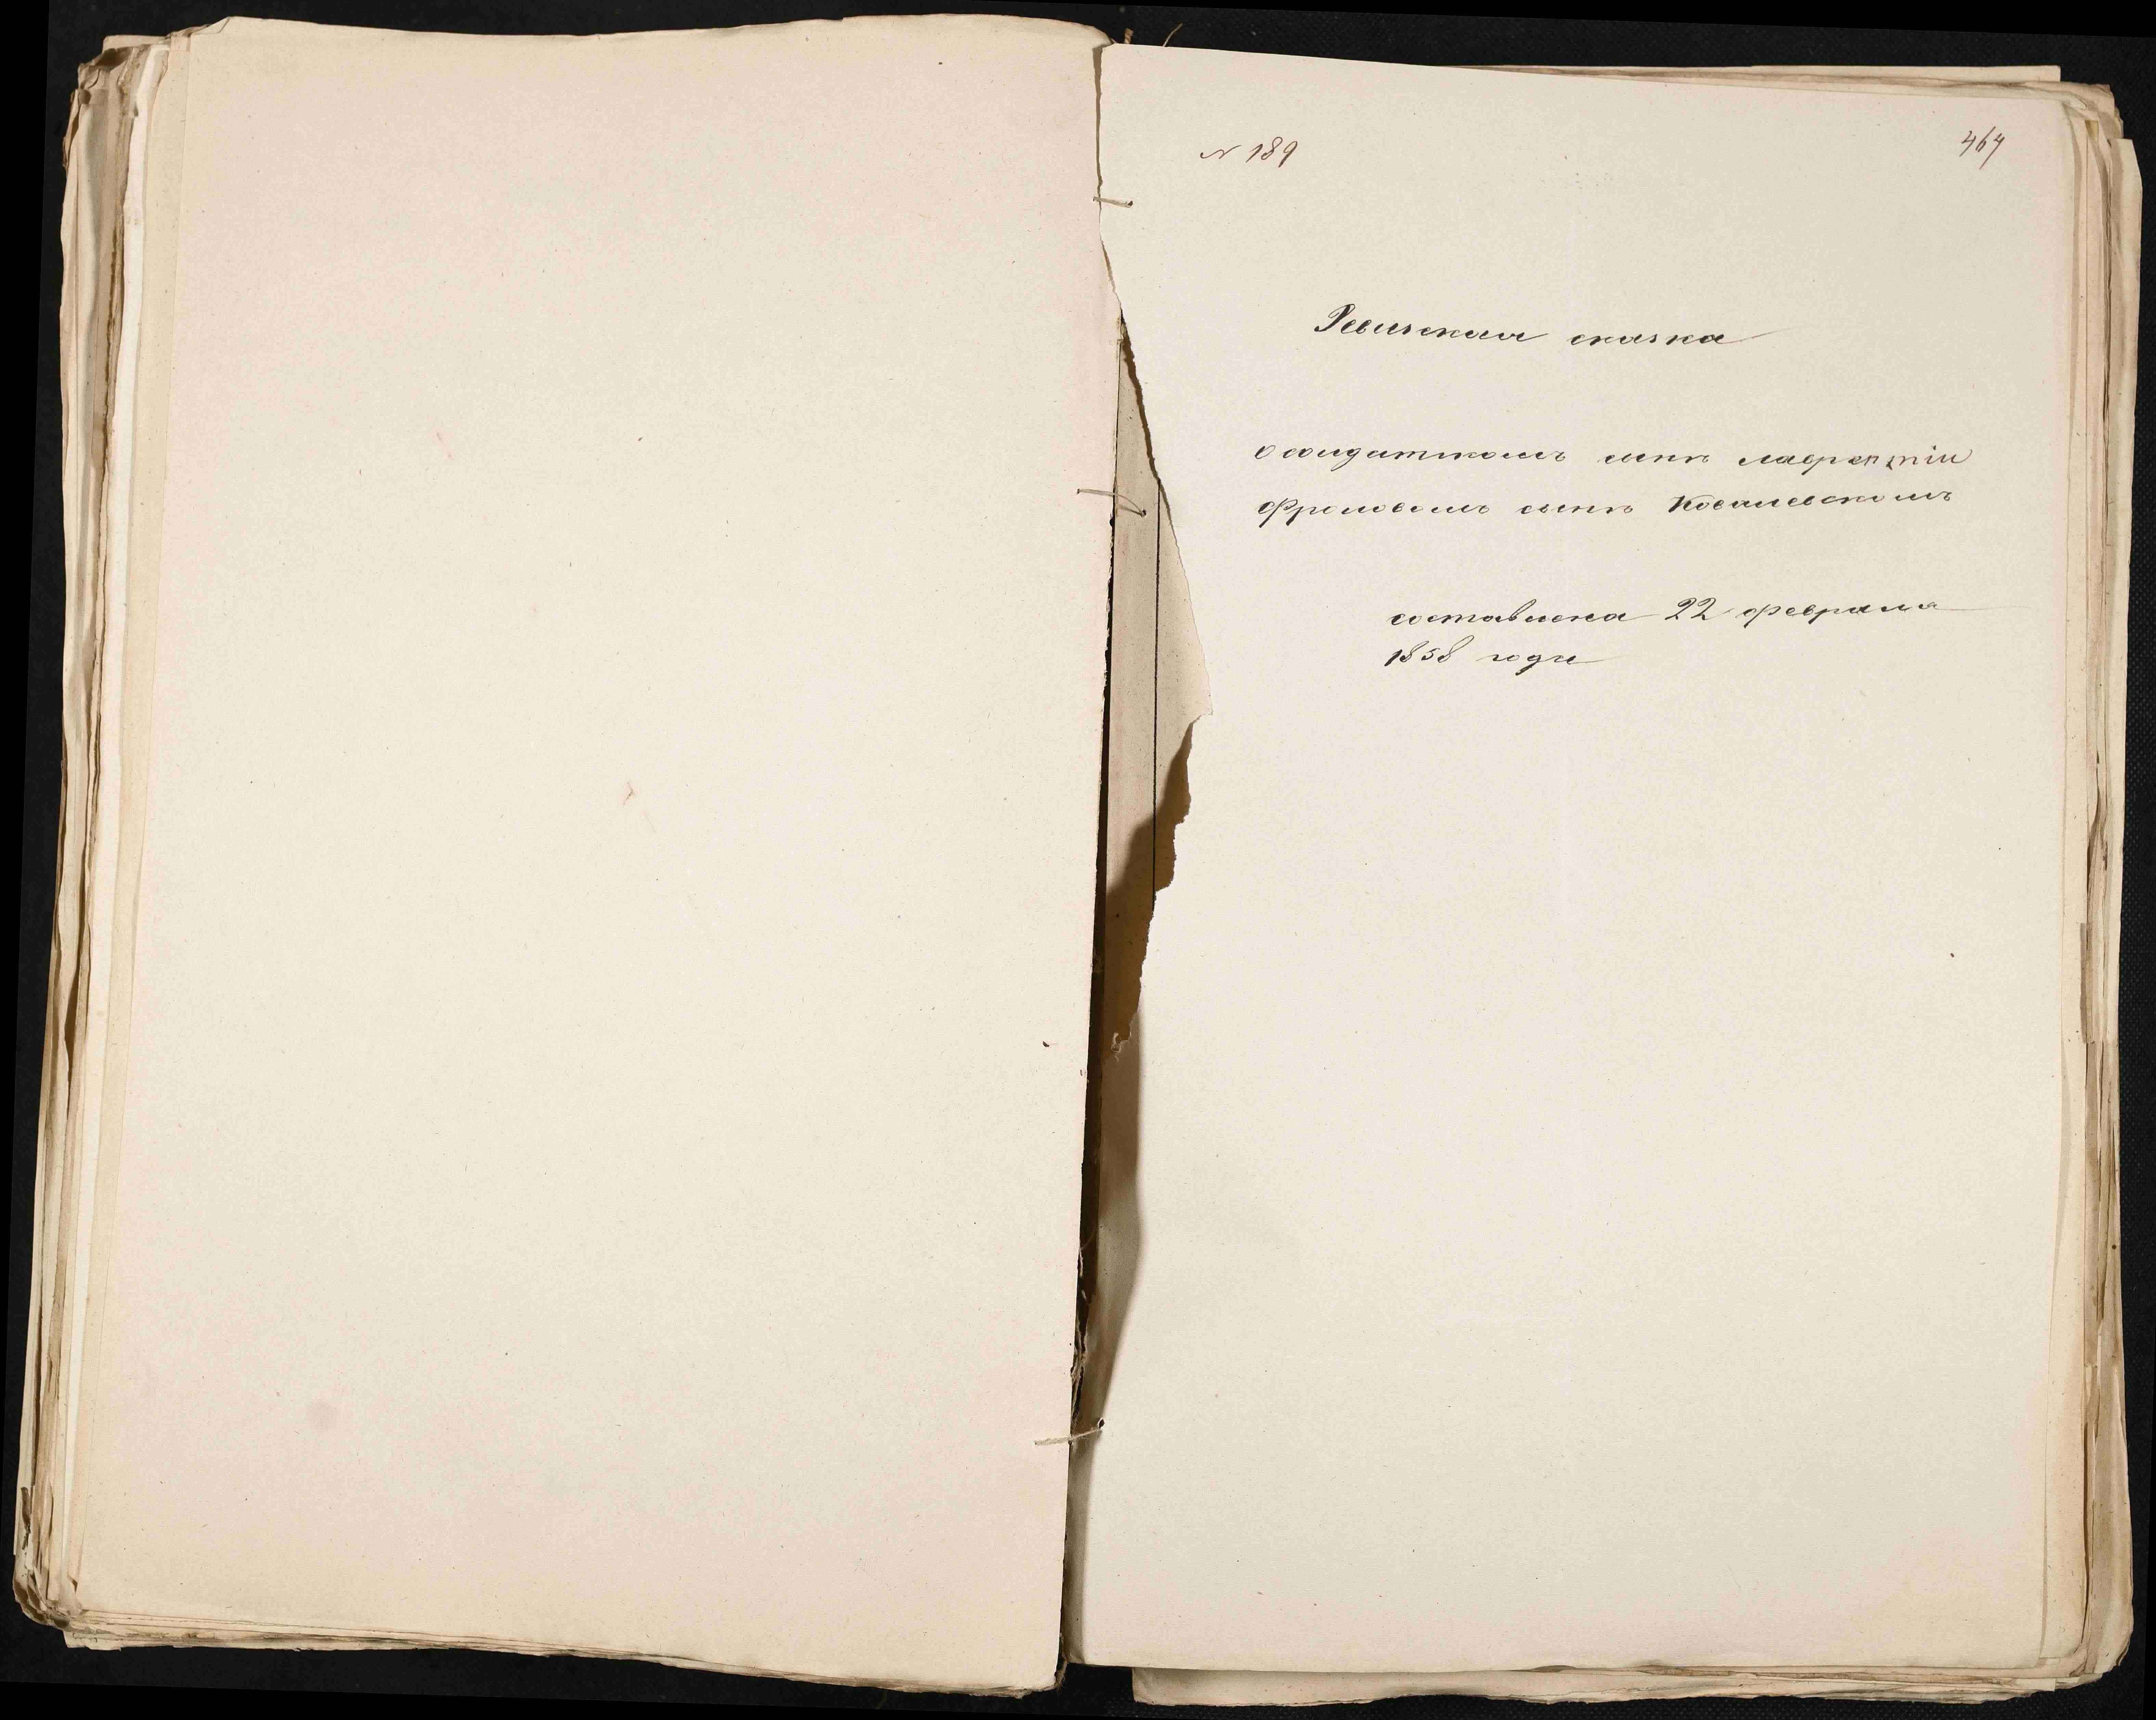 N 189
464
Ревизская сказка
о солдатскомъ сынѣ лаврентіи
Фроловомъ сынѣ Ковалевскомъ
составлена 22 февраля
1858 года